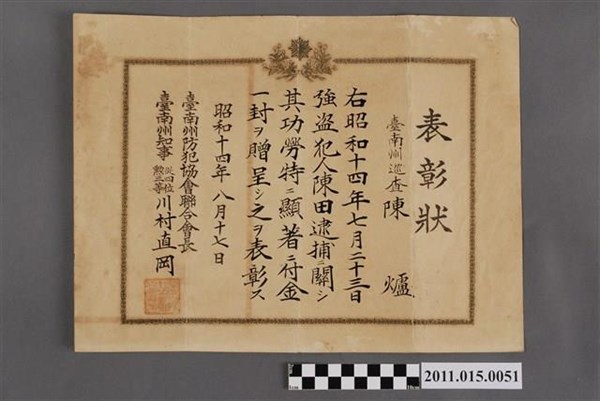 表彰狀
臺南州巡查 陳爐
右昭和十四年七月二十三日
強盜犯人陳田逮捕ニ關シ
其功勞特ニ顯著ニ付金
一封ヲ贈呈シ之ヲ表彰ス
昭和十四年八月十七日
臺南州防犯協會聯合會長
臺南州知事 從四位勲三等 川村直岡
2011.015.0051